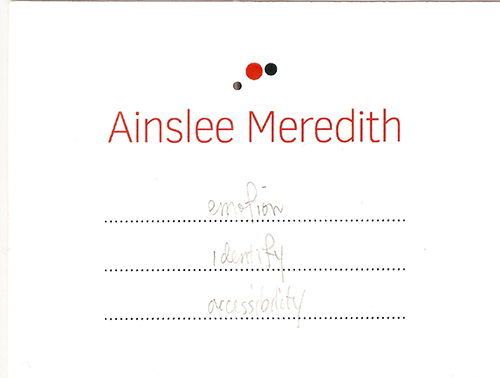 Ainslee Meredith
emotion
identity
accessibility